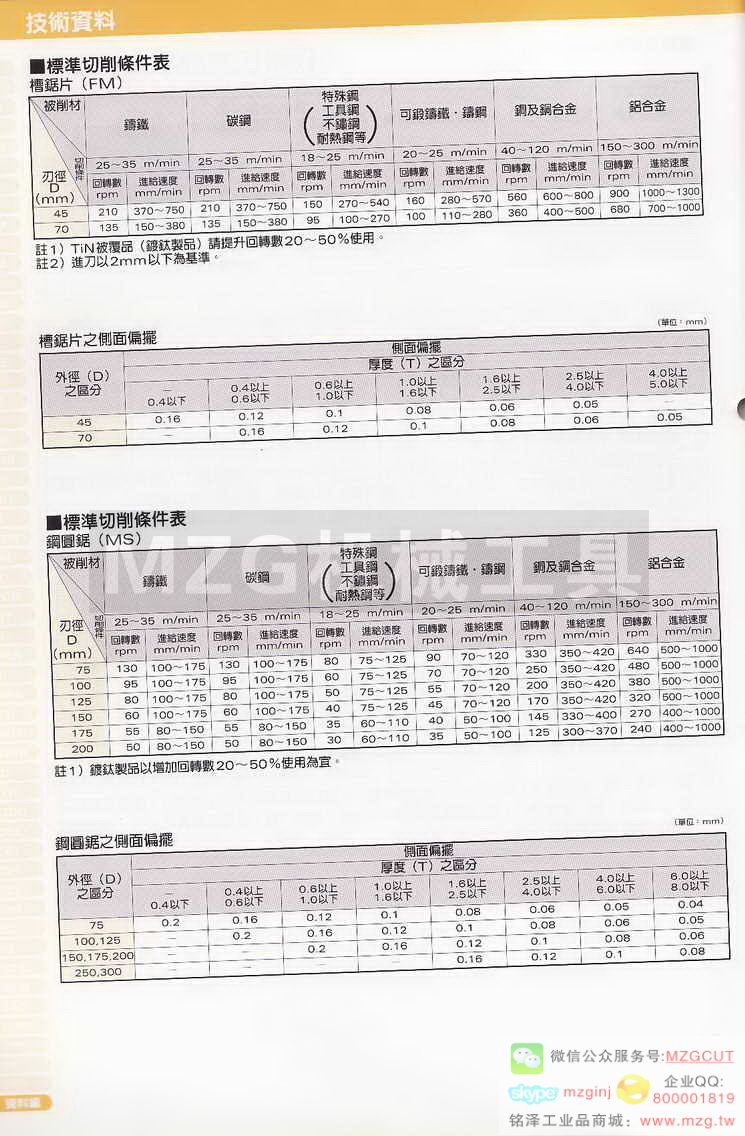 技術資料
■標準切削條件表
槽鋸片（FM）
被削材 鑄鐵 碳鋼 特殊鋼（工具鋼 不鏽鋼 耐熱鋼等） 可鍛鑄鐵・鑄鋼 銅及銅合金 鋁合金
切削條件 25～35 m/min 25～35 m/min 18～25 m/min 20～25 m/min 40～120 m/min 150～300 m/min
刃徑 D (mm) 回轉數 rpm 進給速度 mm/min 回轉數 rpm 進給速度 mm/min 回轉數 rpm 進給速度 mm/min 回轉數 rpm 進給速度 mm/min 回轉數 rpm 進給速度 mm/min 回轉數 rpm 進給速度 mm/min
45 210 370～750 210 370～750 150 270～540 160 280～570 560 600～800 900 1000～1300
70 135 150～380 135 150～380 95 100～270 100 110～280 360 400～500 680 700～1000
註1）TiN被覆品（鍍鈦製品）請提升回轉數20～50％使用。
註2）進刀以2mm以下為基準。
槽鋸片之側面偏擺
（單位：mm）
外徑（D）之區分 側面偏擺
厚度（T）之區分
－ 0.4以下 0.4以上 0.6以下 0.6以上 1.0以下 1.0以上 1.6以下 1.6以上 2.5以下 2.5以上 4.0以下 4.0以上 5.0以下
45 0.16 0.12 0.1 0.08 0.06 0.05 －
70 － 0.16 0.12 0.1 0.08 0.06 0.05
■標準切削條件表
鋼圓鋸（MS）
MZG机械工具
被削材 鑄鐵 碳鋼 特殊鋼（工具鋼 不鏽鋼 耐熱鋼等） 可鍛鑄鐵・鑄鋼 銅及銅合金 鋁合金
切削條件 25～35 m/min 25～35 m/min 18～25 m/min 20～25 m/min 40～120 m/min 150～300 m/min
刃徑 D (mm) 回轉數 rpm 進給速度 mm/min 回轉數 rpm 進給速度 mm/min 回轉數 rpm 進給速度 mm/min 回轉數 rpm 進給速度 mm/min 回轉數 rpm 進給速度 mm/min 回轉數 rpm 進給速度 mm/min
75 130 100～175 130 100～175 80 75～125 90 70～120 330 350～420 640 500～1000
100 95 100～175 95 100～175 60 75～125 70 70～120 250 350～420 480 500～1000
125 80 100～175 80 100～175 50 75～125 55 70～120 200 350～420 380 500～1000
150 60 100～175 60 100～175 40 75～125 45 70～120 170 350～420 320 500～1000
175 55 80～150 55 80～150 35 60～110 40 50～100 145 330～400 270 400～1000
200 50 80～150 50 80～150 30 60～110 35 50～100 125 300～370 240 400～1000
註1）鍍鈦製品以增加回轉數20～50％使用為宜。
（單位：mm）
鋼圓鋸之側面偏擺
外徑（D）之區分 側面偏擺
厚度（T）之區分
－ 0.4以下 0.4以上 0.6以下 0.6以上 1.0以下 1.0以上 1.6以下 1.6以上 2.5以下 2.5以上 4.0以下 4.0以上 6.0以下 6.0以上 8.0以下
75 0.2 0.16 0.12 0.1 0.08 0.06 0.05 0.04
100,125 － 0.2 0.16 0.12 0.1 0.08 0.06 0.05
150,175,200 － － 0.2 0.16 0.12 0.1 0.08 0.06
250,300 － － － － 0.16 0.12 0.1 0.08
微信公众服务号:MZGCUT
skype mzginj 企业QQ: 800001819
铭泽工业品商城：www.mzg.tw
資料編